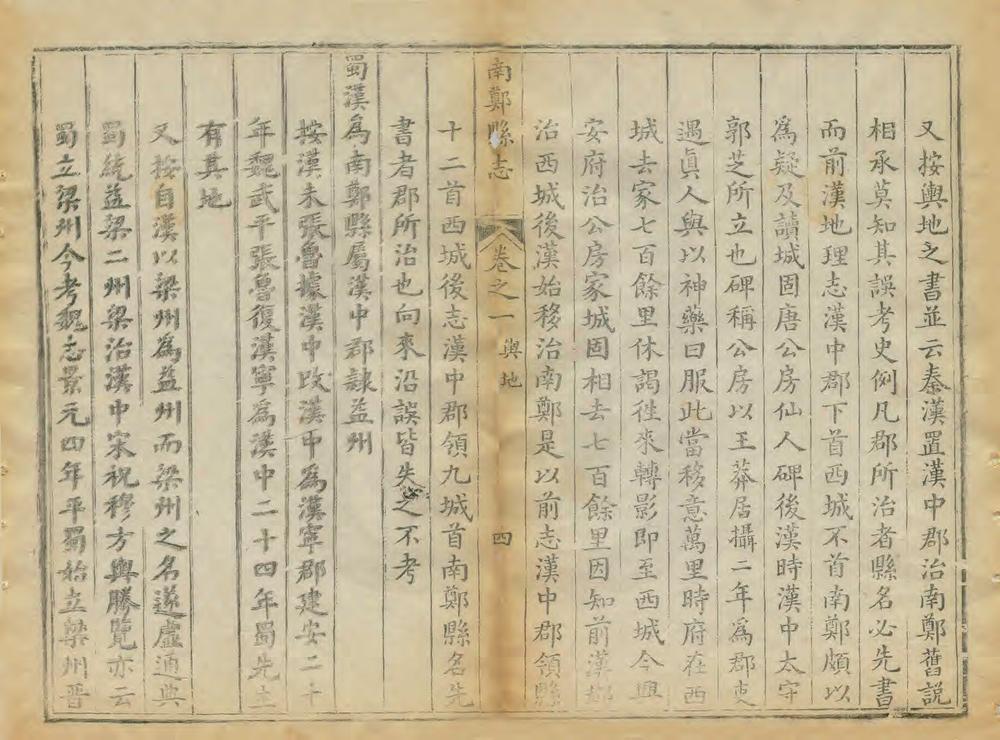 又按輿地之書並云秦漢置漢中郡治南鄭舊説
相承莫知其誤考史例凡郡所治者縣名必先書
而前漢地理志漢中郡下首西城不首南鄭頗以
為疑及讀城固唐公房仙人碑後漢時漢中太守
郭芝所立也碑稱公房以王莽居攝二年為郡吏
遇真人與以神藥曰服此當移意萬里時府在西
城去家七百餘里休謁徃來轉影即至西城今興
安府治公房家城固相去七百餘里因知前漢郡
治西城後漢始移治南鄭是以前志漢中郡領縣
南鄭縣志 卷之一 輿地 四
十二首西城後志漢中郡領九城首南鄭縣名先
書者郡所治也向來沿誤皆失之不考
蜀漢為南鄭縣屬漢中郡隷益州
按漢末張魯據漢中改漢中為漢寧郡建安二十
年魏武平張魯復漢寧為漢中二十四年蜀先主
有其地
又按自漢以梁州為益州而梁州之名遂虛通典
蜀統益梁二州梁治漢中宋祝穆方輿勝覽亦云
蜀立梁州今考魏志景元四年平蜀始立梁州晋